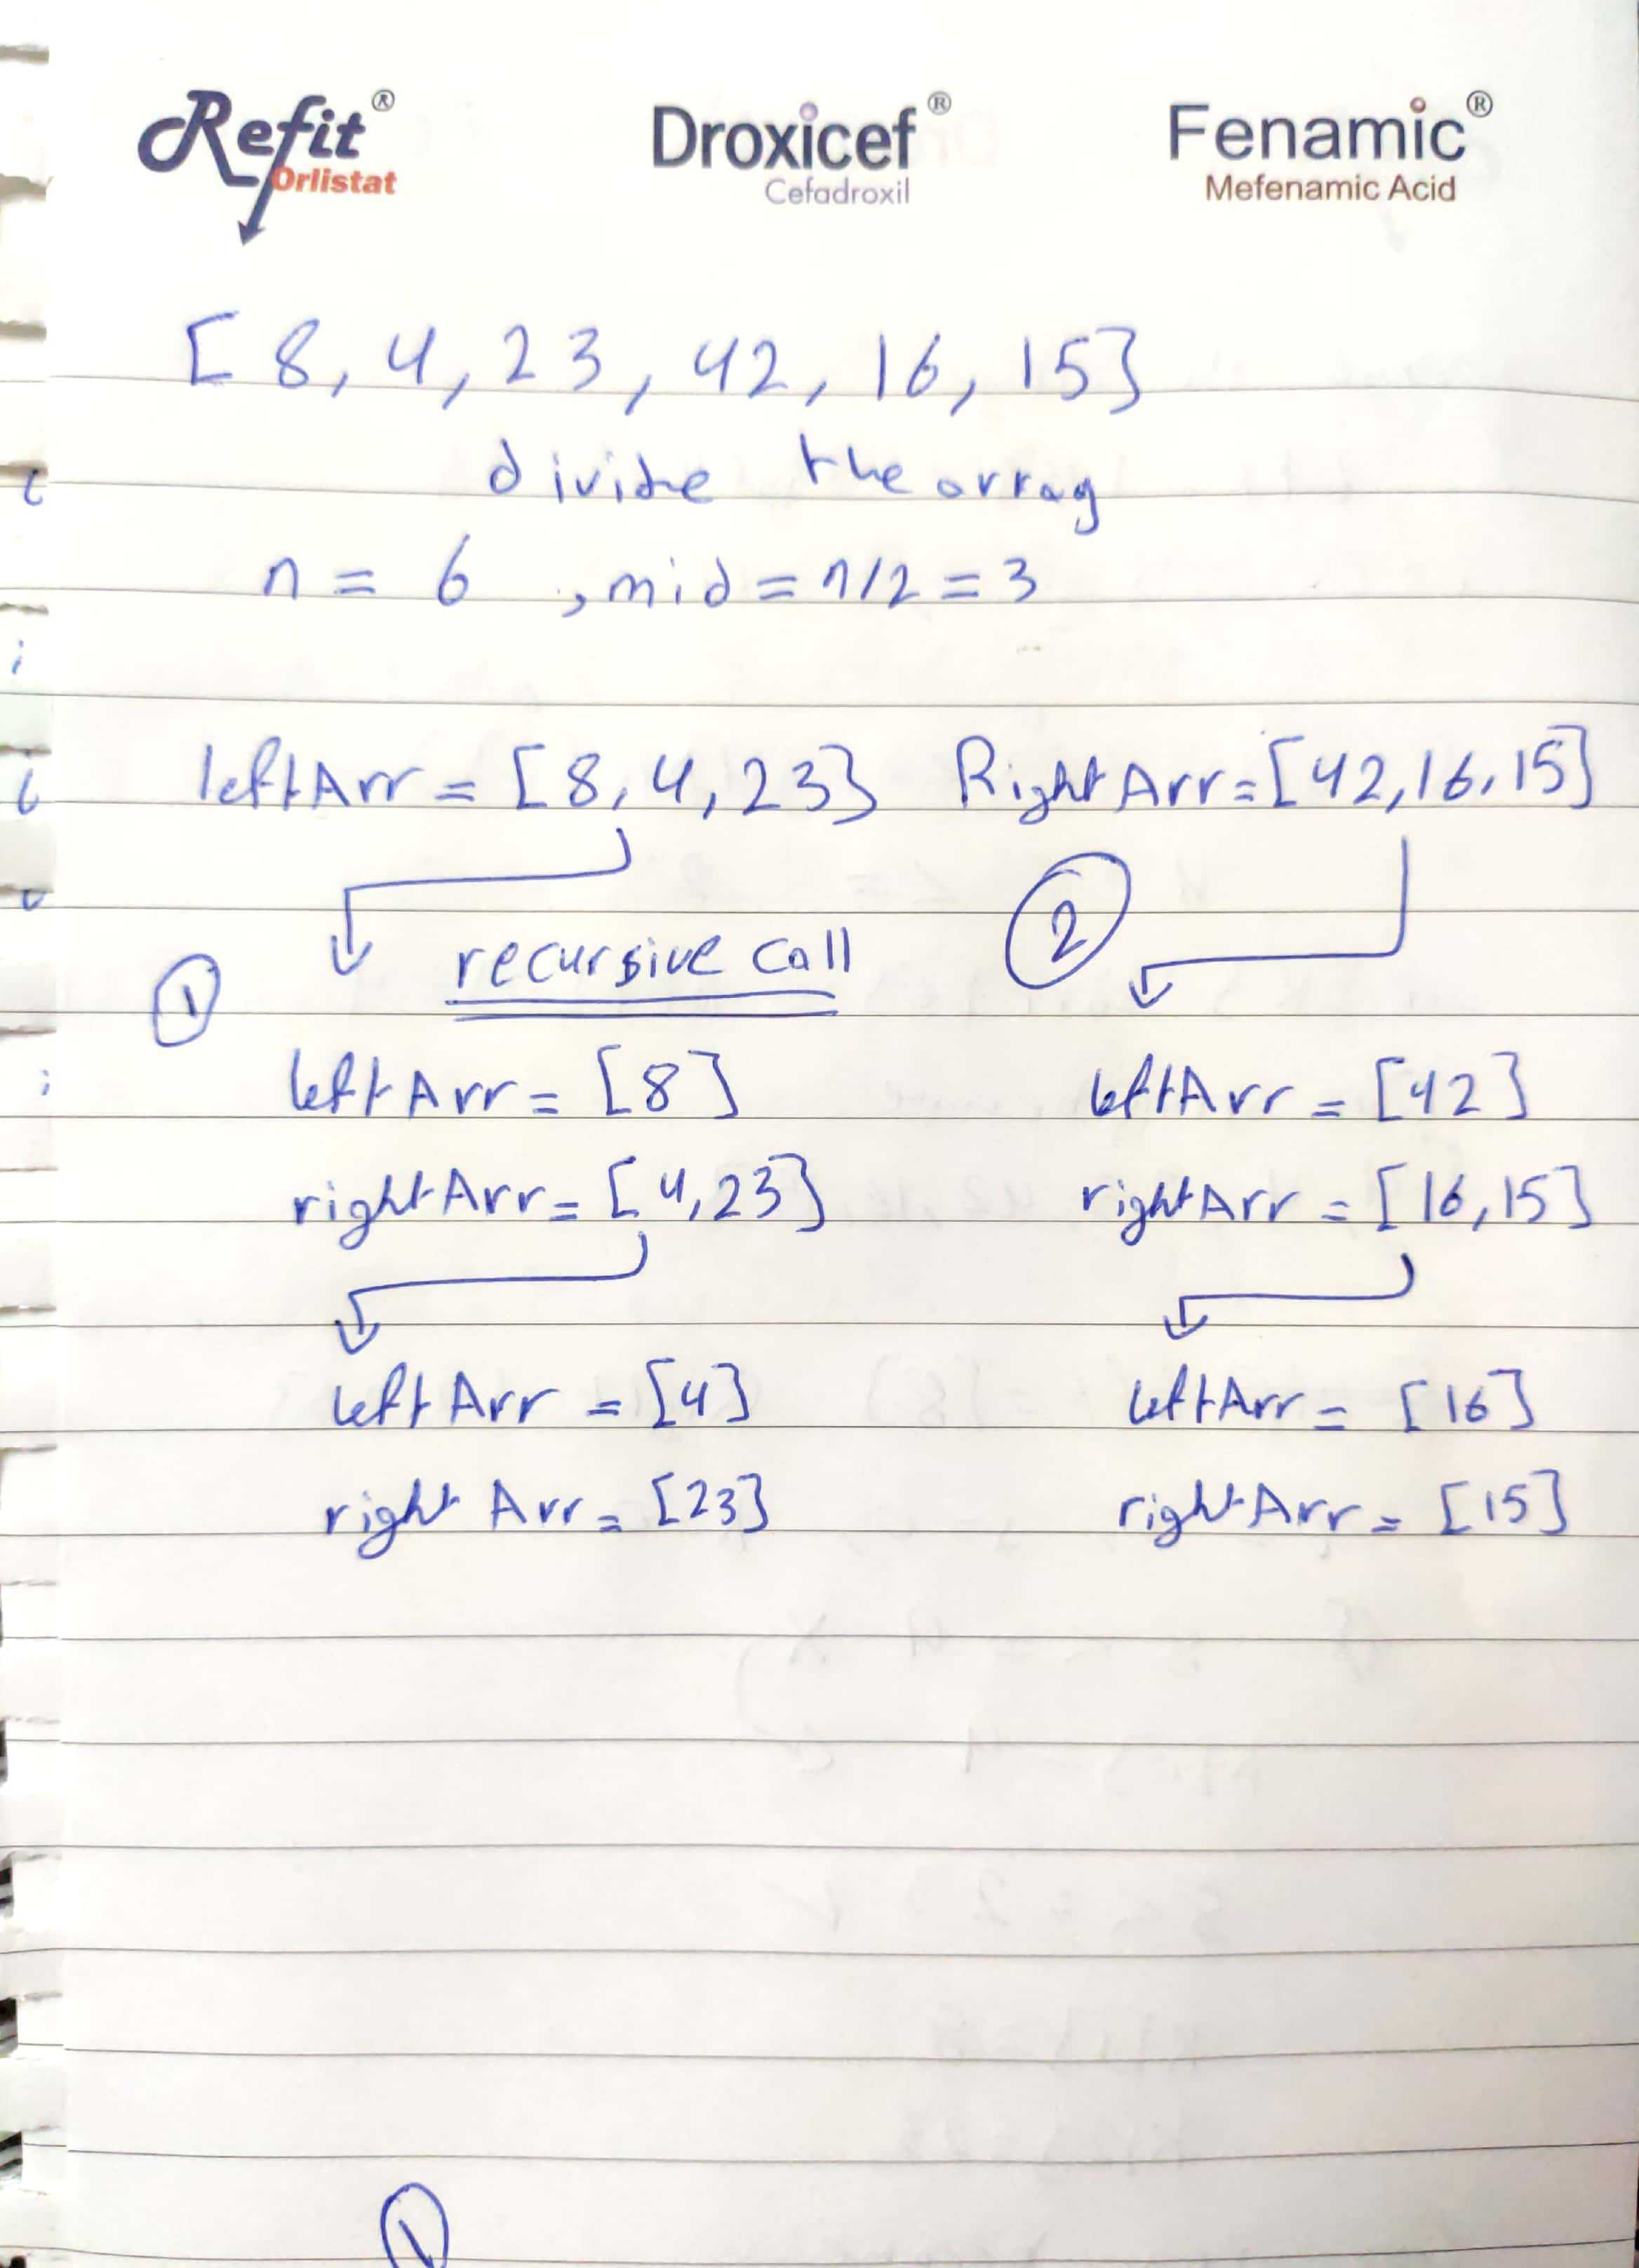 Refit®
Orlistat
Droxicef®
Cefadroxil
Fenamic®
Mefenamic Acid
[8, 4, 23, 42, 16, 15]
divide the array
n = 6 , mid = n/2 = 3
leftArr = [8, 4, 23] RightArr = [42, 16, 15]
1 recursive call 2
leftArr = [8] leftArr = [42]
rightArr = [4, 23] rightArr = [16, 15]
leftArr = [4] leftArr = [16]
right Arr = [23] rightArr = [15]
1